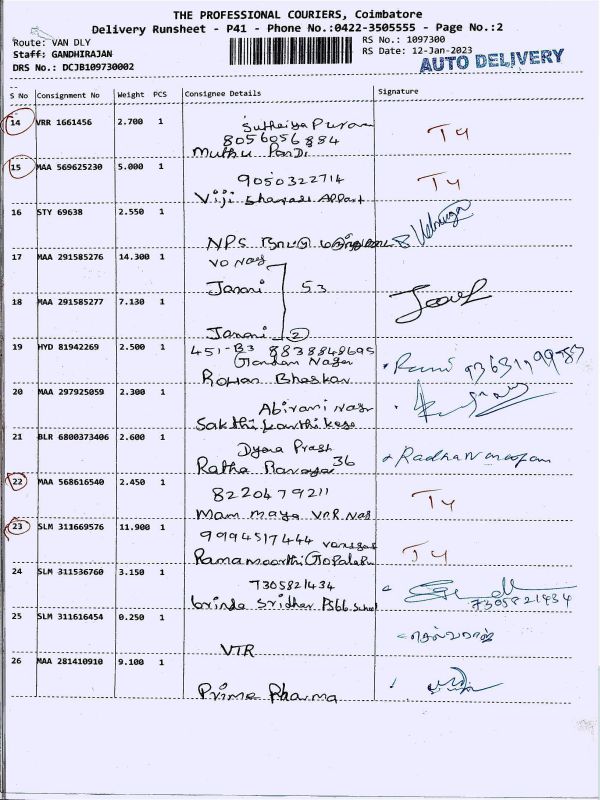 THE PROFESSIONAL COURIERS, Coimbatore
Delivery Runsheet - P41 - Phone No.:0422-3505555 - Page No.:2
Route: VAN DLY
RS No.: 1097300
Staff: GANDHIRAJAN
RS Date: 12-Jan-2023
DRS No.: DCJB109730002
AUTO DELIVERY
S No Consignment No Weight PCS Consignee Details Signature
14 VRR 1661456 2.700 1
8056056884
Muthu Pandi
T4
15 MAA 569625230 5.000 1
9050322714
Viji
T4
16 STY 69638 2.550 1
NPS
17 MAA 291585276 14.300 1
VO Nag
Janani
53
18 MAA 291585277 7.130 1
Janani 2
19 HYD 81942269 2.500 1
451-B3 8838848695
Nagar
Rohan Bhaskar
20 MAA 297925059 2.300 1
Abirami Nagr
Sakthi Karthikese
21 BLR 6800373406 2.600 1
36
22 MAA 568616540 2.450 1
8220479211
VNR Nag
T4
23 SLM 311669576 11.900 1
9994517444
T4
24 SLM 311536760 3.150 1
7305821434
brinda Sridhar School
7305821434
25 SLM 311616454 0.250 1
VTR
செல்வராஜ்
26 MAA 281410910 9.100 1
Prime Pharma